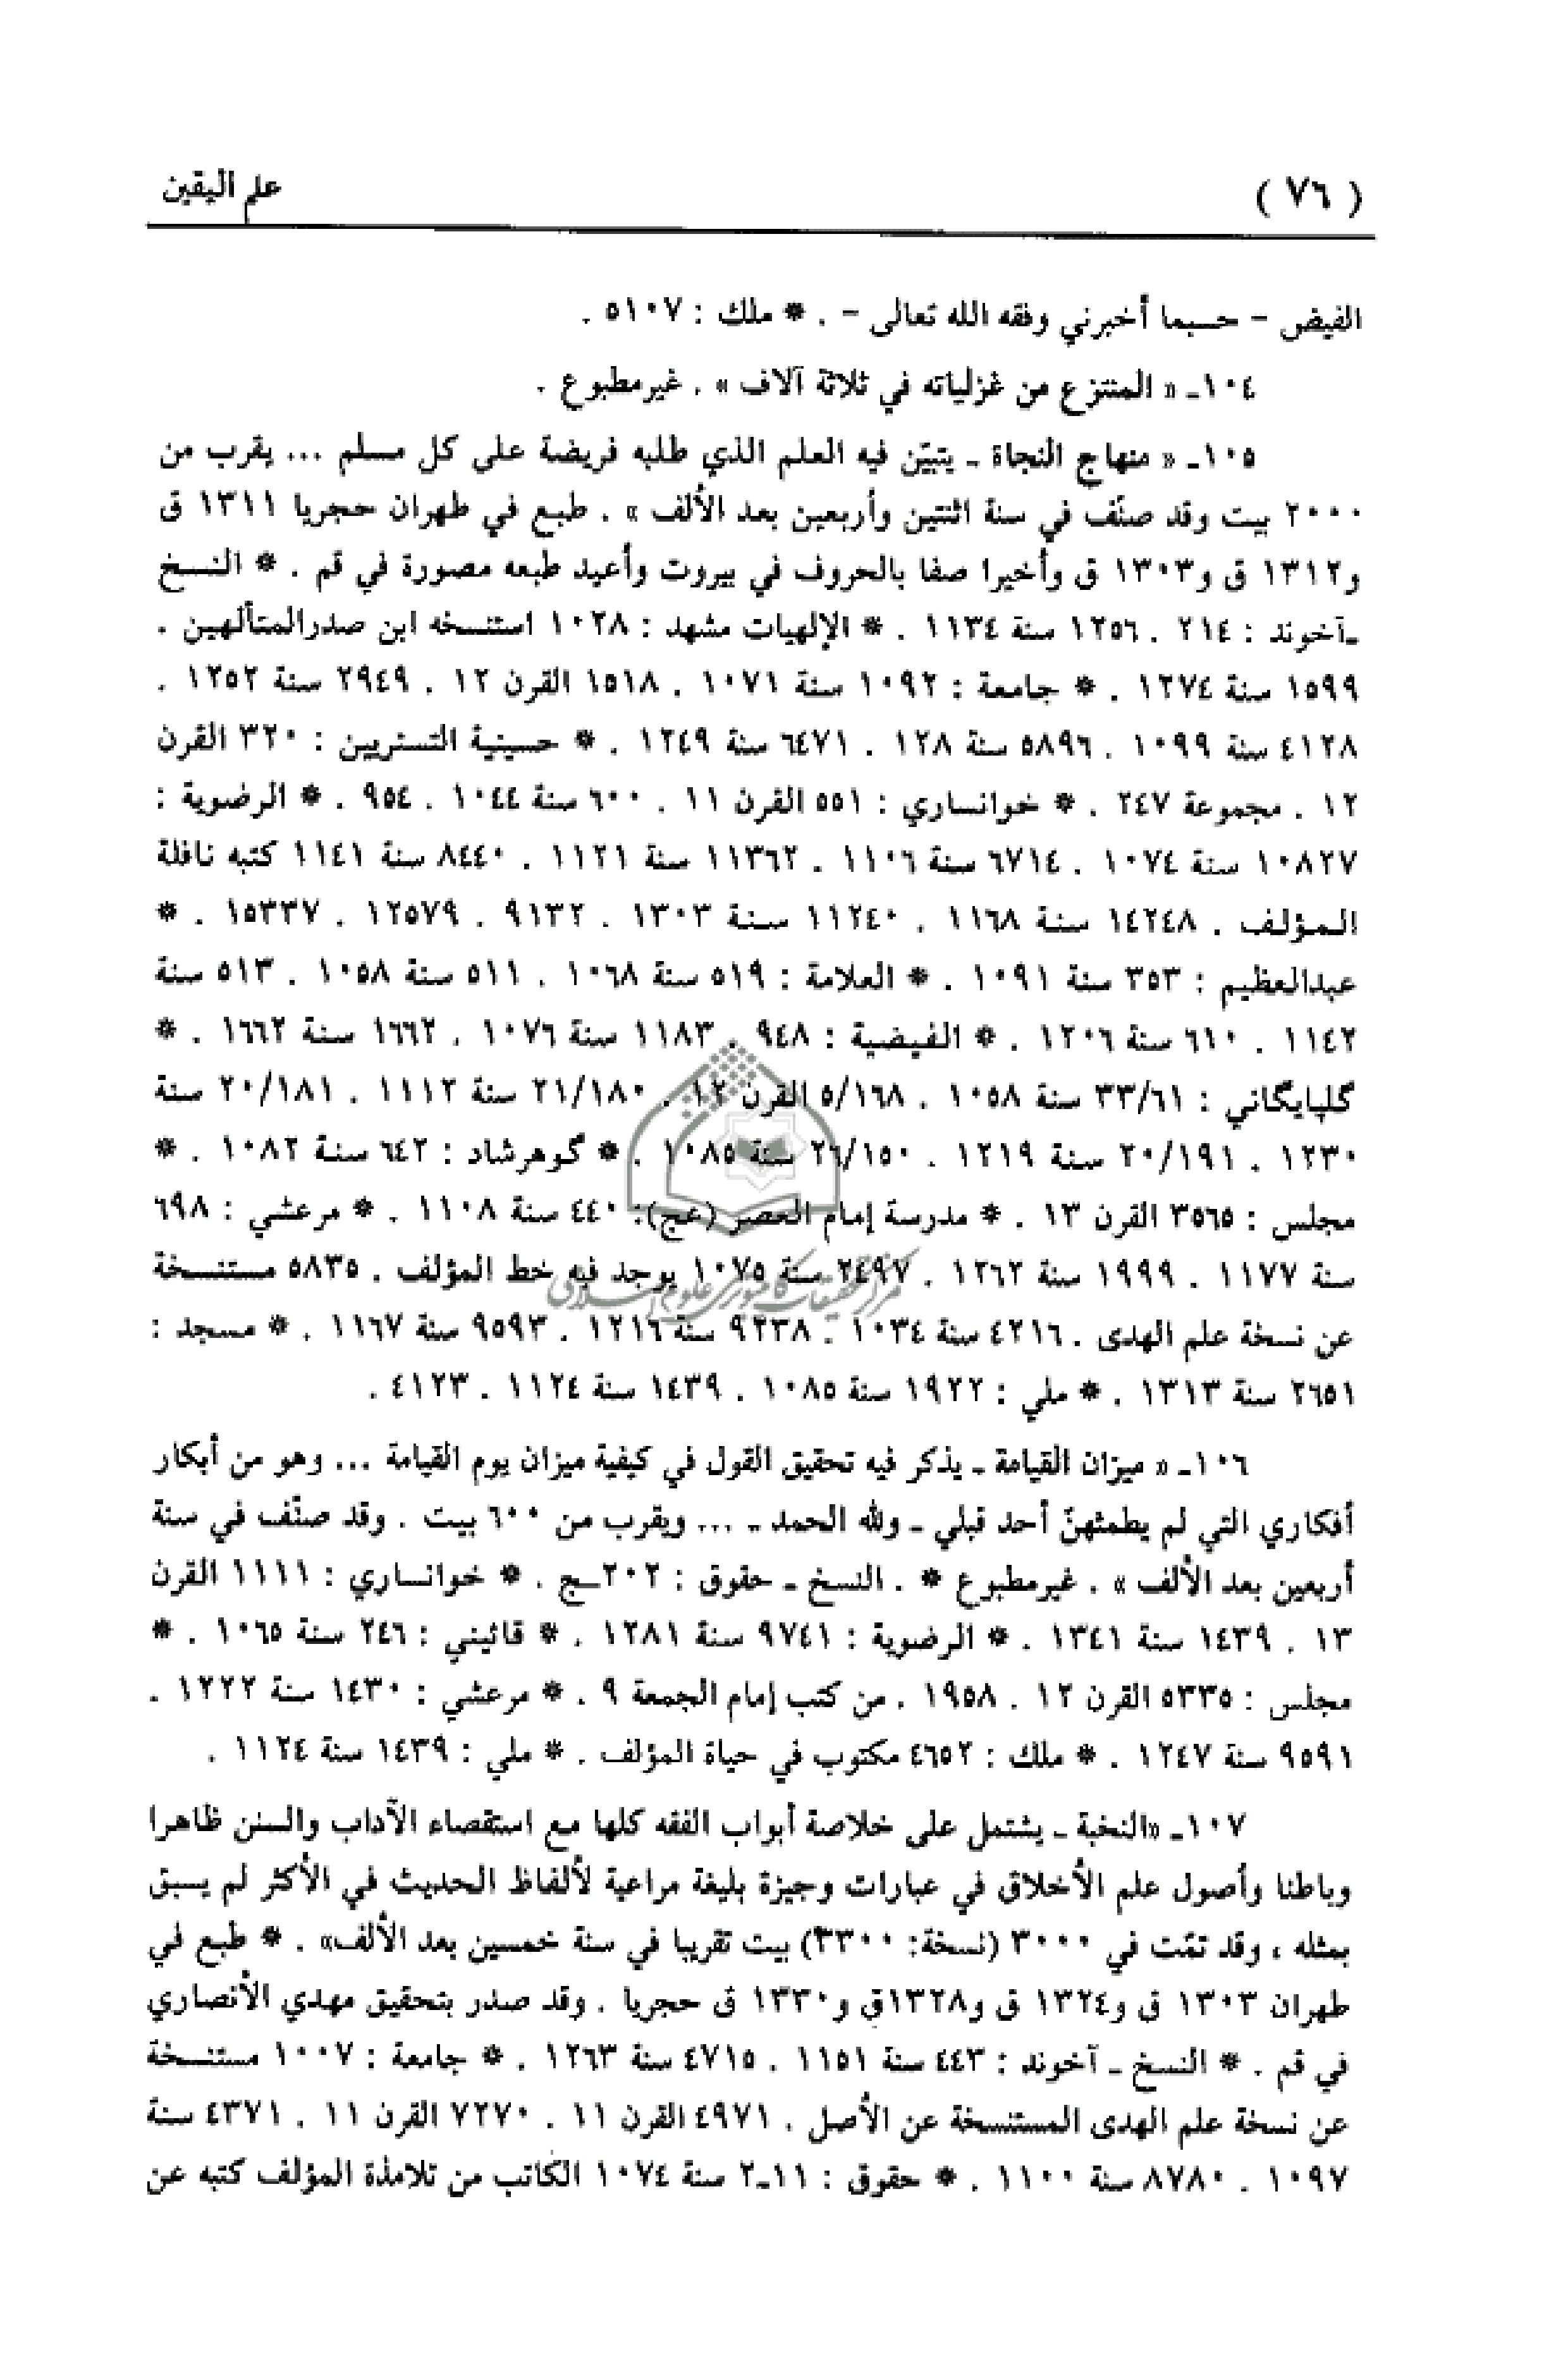 ( ٧٦ ) علم اليقين
الفيض - حسبما أخبرني وفقه الله تعالى - . * ملك : ٥١٠٧ .
١٠٤ـ « المنتزع من غزلياته في ثلاثة آلاف » . غيرمطبوع .
١٠٥ـ « منهاج النجاة ـ يتبيّن فيه العلم الذي طلبه فريضة على كل مسلم ... يقرب من
٢٠٠٠ بيت وقد صنّف في سنة اثنتين وأربعين بعد الألف » . طبع في طهران حجريا ١٣١١ ق
و١٣١٢ ق و١٣٠٣ ق وأخيرا صفا بالحروف في بيروت وأعيد طبعه مصورة في قم . * النسخ
ـآخوند : ٢١٤ . ١٢٥٦ سنة ١١٣٤ . * الإلهيات مشهد : ١٠٢٨ استنسخه ابن صدرالمتألهين .
١٥٩٩ سنة ١٢٧٤ . * جامعة : ١٠٩٢ سنة ١٠٧١ . ١٥١٨ القرن ١٢ . ٢٩٤٩ سنة ١٢٥٢ .
٤١٢٨ سنة ١٠٩٩ . ٥٨٩٦ سنة ١٢٨ . ٦٤٧١ سنة ١٢٤٩ . * حسينية التستريين : ٣٢٠ القرن
١٢ . مجموعة ٢٤٧ . * خوانساري : ٥٥١ القرن ١١ . ٦٠٠ سنة ١٠٤٤ . ٩٥٤ . * الرضوية :
١٠٨٢٧ سنة ١٠٧٤ . ٦٧١٤ سنة ١١٠٦ . ١١٣٦٢ سنة ١١٢١ . ٨٤٤٠ سنة ١١٤١ كتبه نافلة
المؤلف . ١٤٢٤٨ سنة ١١٦٨ . ١١٢٤٠ سنة ١٣٠٣ . ٩١٣٢ . ١٢٥٧٩ . ١٥٣٣٧ . *
عبدالعظيم : ٣٥٣ سنة ١٠٩١ . * العلامة : ٥١٩ سنة ١٠٦٨ . ٥١١ سنة ١٠٥٨ . ٥١٣ سنة
١١٤٢ . ٦١٠ سنة ١٢٠٦ . * الفيضية : ٩٤٨ . ١١٨٣ سنة ١٠٧٦ . ١٦٦٢ سنة ١٦٦٢ . *
گلپايگاني : ٣٣/٦١ سنة ١٠٥٨ . ٥/١٦٨ القرن ١٢ . ٢١/١٨٠ سنة ١١١٢ . ٢٠/١٨١ سنة
١٢٣٠ . ٢٠/١٩١ سنة ١٢١٩ . ٢٦/١٥٠ سنة ١٠٨٥ . * گوهرشاد : ٦٤٢ سنة ١٠٨٢ . *
مجلس : ٣٥٦٥ القرن ١٣ . * مدرسة إمام العصر (عج): ٤٤٠ سنة ١١٠٨ . * مرعشي : ٦٩٨
سنة ١١٧٧ . ١٩٩٩ سنة ١٢٦٢ . ٢٤٩٧ سنة ١٠٧٥ يوجد فيه خط المؤلف . ٥٨٣٥ مستنسخة
عن نسخة علم الهدى . ٤٢١٦ سنة ١٠٣٤ . ٩٢٣٨ سنة ١٢١٦ . ٩٥٩٣ سنة ١١٦٧ . * مسجد :
٢٦٥١ سنة ١٣١٣ . * ملي : ١٩٢٢ سنة ١٠٨٥ . ١٤٣٩ سنة ١١٢٤ . ٤١٢٣ .
مركز تحقيقات كامپيوتری علوم اسلامی
١٠٦ـ « ميزان القيامة ـ يذكر فيه تحقيق القول في كيفية ميزان يوم القيامة ... وهو من أبكار
أفكاري التي لم يطمثهنّ أحد قبلي ـ ولله الحمد ـ ... ويقرب من ٦٠٠ بيت . وقد صنّف في سنة
أربعين بعد الألف » . غيرمطبوع * . النسخ ـ حقوق : ٢٠٢ـج . * خوانساري : ١١١١ القرن
١٣ . ١٤٣٩ سنة ١٣٤١ . * الرضوية : ٩٧٤١ سنة ١٢٨١ . * قائيني : ٢٤٦ سنة ١٠٦٥ . *
مجلس : ٥٣٣٥ القرن ١٢ . ١٩٥٨ . من كتب إمام الجمعة ٩ . * مرعشي : ١٤٣٠ سنة ١٢٢٢ .
٩٥٩١ سنة ١٢٤٧ . * ملك : ٤٦٥٢ مكتوب في حياة المؤلف . * ملي : ١٤٣٩ سنة ١١٢٤ .
١٠٧ـ «النخبة ـ يشتمل على خلاصة أبواب الفقه كلها مع استقصاء الآداب والسنن ظاهرا
وباطنا وأصول علم الأخلاق في عبارات وجيزة بليغة مراعية لألفاظ الحديث في الأكثر لم يسبق
بمثله ، وقد تمّت في ٣٠٠٠ (نسخة: ٣٣٠٠) بيت تقريبا في سنة خمسين بعد الألف» . * طبع في
طهران ١٣٠٣ ق و١٣٢٤ ق و١٣٢٨ق و١٣٣٠ ق حجريا . وقد صدر بتحقيق مهدي الأنصاري
في قم . * النسخ ـ آخوند : ٤٤٣ سنة ١١٥١ . ٤٧١٥ سنة ١٢٦٣ . * جامعة : ١٠٠٧ مستنسخة
عن نسخة علم الهدى المستنسخة عن الأصل . ٤٩٧١ القرن ١١ . ٧٢٧٠ القرن ١١ . ٤٣٧١ سنة
١٠٩٧ . ٨٧٨٠ سنة ١١٠٠ . * حقوق : ١١ـ٢ سنة ١٠٧٤ الكاتب من تلامذة المؤلف كتبه عن